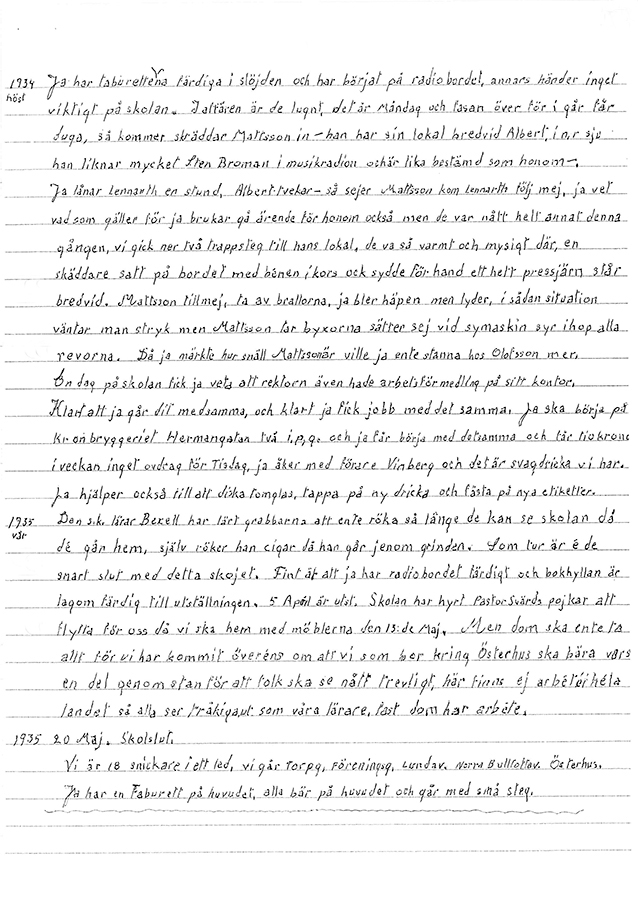 1934 Ja har taburetterna färdiga i slöjden och har börjat på radiobordet, annars händer inget
höst viktigt på skolan. I affären är de lugnt, det är Måndag och tasan över för i går får
duga, så kommer skräddar Mattsson in – han har sin lokal bredvid Albert, i n,r sju
han liknar mycket Sten Broman i musikradion och är lika bestämd som honom –.
Ja lånar Lennarth en stund, Albert tvekar – så sejer Mattsson kom Lennarth följ mej, ja vet
vad som gäller för ja brukar gå ärende för honom också men de var nått helt annat denna
gången, vi gick ner två trappsteg till hans lokal, de va så varmt och mysigt där, en
skäddare satt på bordet med benen i kors ock sydde för hand ett hett pressjärn står
bredvid. Mattsson till mej, ta av brallorna, ja bler häpen men lyder, i sådan situation
väntar man stryk men Mattsson tar byxorna sätter sej vid symaskin syr ihop alla
revorna. Då ja märkte hur snäll Mattsson är ville ja ente stanna hos Olofsson mer.
En dag på skolan fick ja veta att rektorn även hade arbetsförmedling på sitt kontor.
Klart att ja går dit medsamma, och klart ja fick jobb med det samma. Ja ska börja på
Kronbryggeriet Hermansgatan två i,p,g. och ja får börja med detsamma och får tio krono
i veckan inget ovdrag för Tisdag, ja åker med förare Vinberg och det är svagdricka vi har.
Ja hjälper också till att diska tomglas, tappa på ny dricka och fästa på nya etiketter.
1935 Den s.k. lärar Bexell har lärt grabbarna att ente röka så länge de kan se skolan då
vår de går hem, själv röker han cigar då han går jenom grinden. Som tur är é de
snart slut med detta skojet. Fint är att ja har radiobordet färdigt och bokhyllan är
lagom färdig till utställningen. 5 April är utst. Skolan har hyrt Pastor Svärds pojkar att
flytta för oss då vi ska hem med möblerna den 15:de Maj. Men dom ska ente ta
allt för vi har kommit överéns om att vi som bor kring Österhus ska bära vars
en del genom stan för att folk ska se nått trevligt, här finns ej arbéte i héla
landet så alla ser tråkiga ut som våra lärare, fast dom har arbéte.
1935 20 Maj. Skolslut.
Vi är 18 snickare i ett led, vi går Torpg, Föreningsg, Lundav. Norra Bulltoftav. Österhus.
Ja har en Taburett på huvudet, alla bär på huvudet och går med små steg.